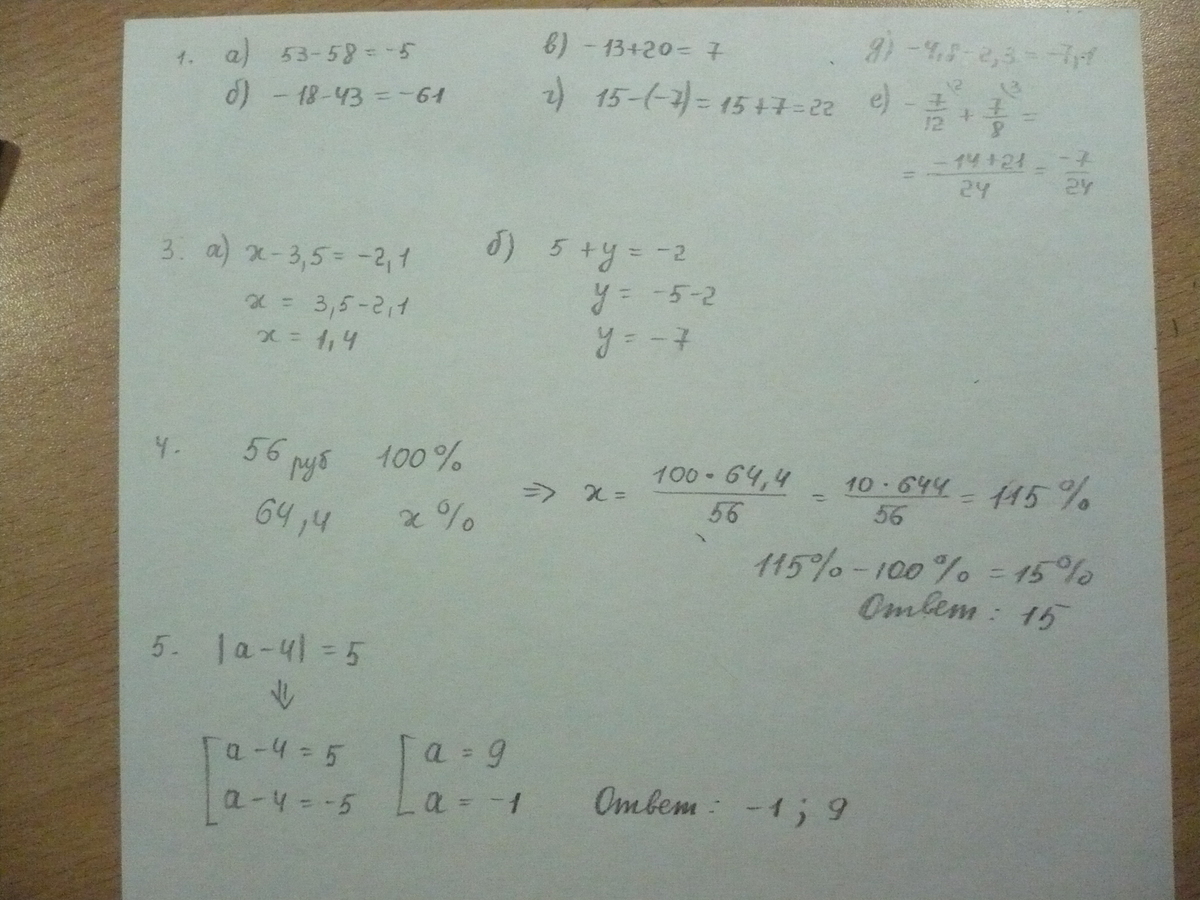 1. а) 53-58=-5 в) -13+20=7 д) -4,8-2,3=-7,1
б) -18-43=-61 г) 15-(-7)=15+7=22 е) -7/12\2 + 7/8\3 =
= (-14+21)/24 = -7/24
3. а) x-3,5=-2,1 б) 5+y=-2
x = 3,5-2,1 y = -5-2
x = 1,4 y = -7
4. 56 руб 100%
64,4 x% => x = (100·64,4)/56 = (10·644)/56 = 115%
115%-100%=15%
Ответ: 15
5. |a-4|=5
⇓
[a-4=5 [a=9
a-4=-5 a=-1 Ответ: -1; 9